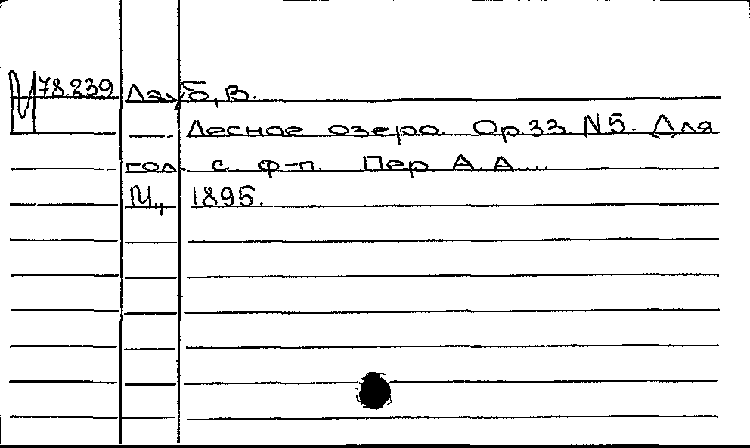 М 78239 Лауб, В.
Лесное озеро. Op.33 N5. Для
гол. с ф-п. Пер. А. А...
М., 1895.